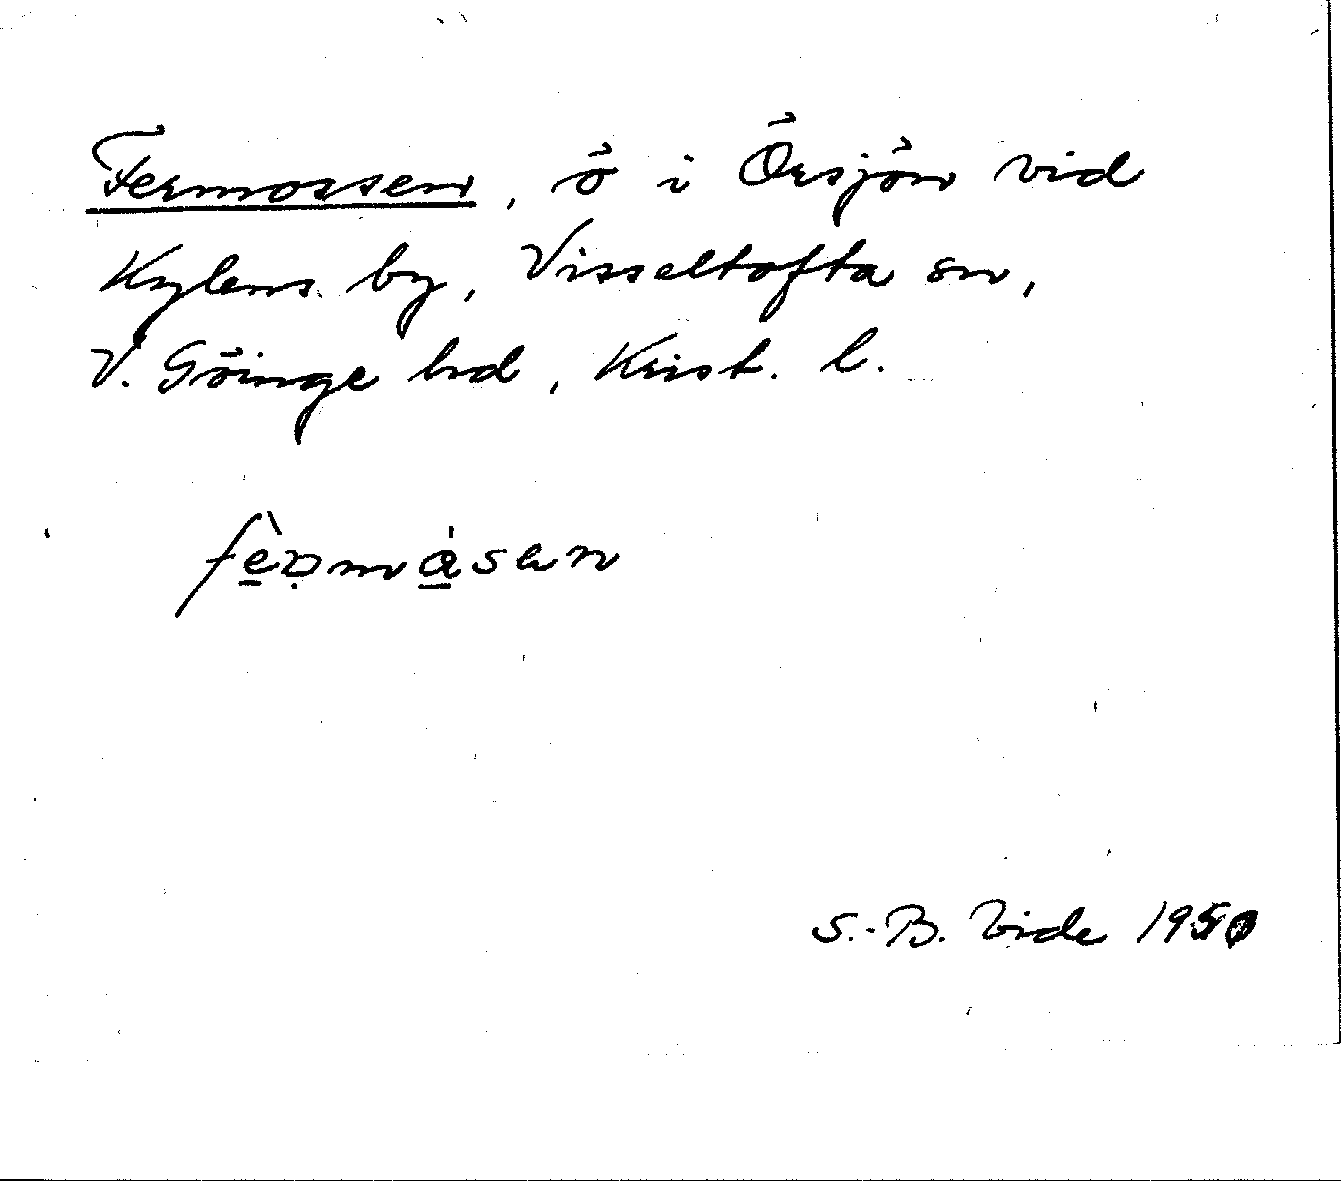 Fermossen, ö i Örsjön vid
Kylens by, Visseltofta sn,
V. Göinge hd, Krist. l.
S.-B. Vide 1950